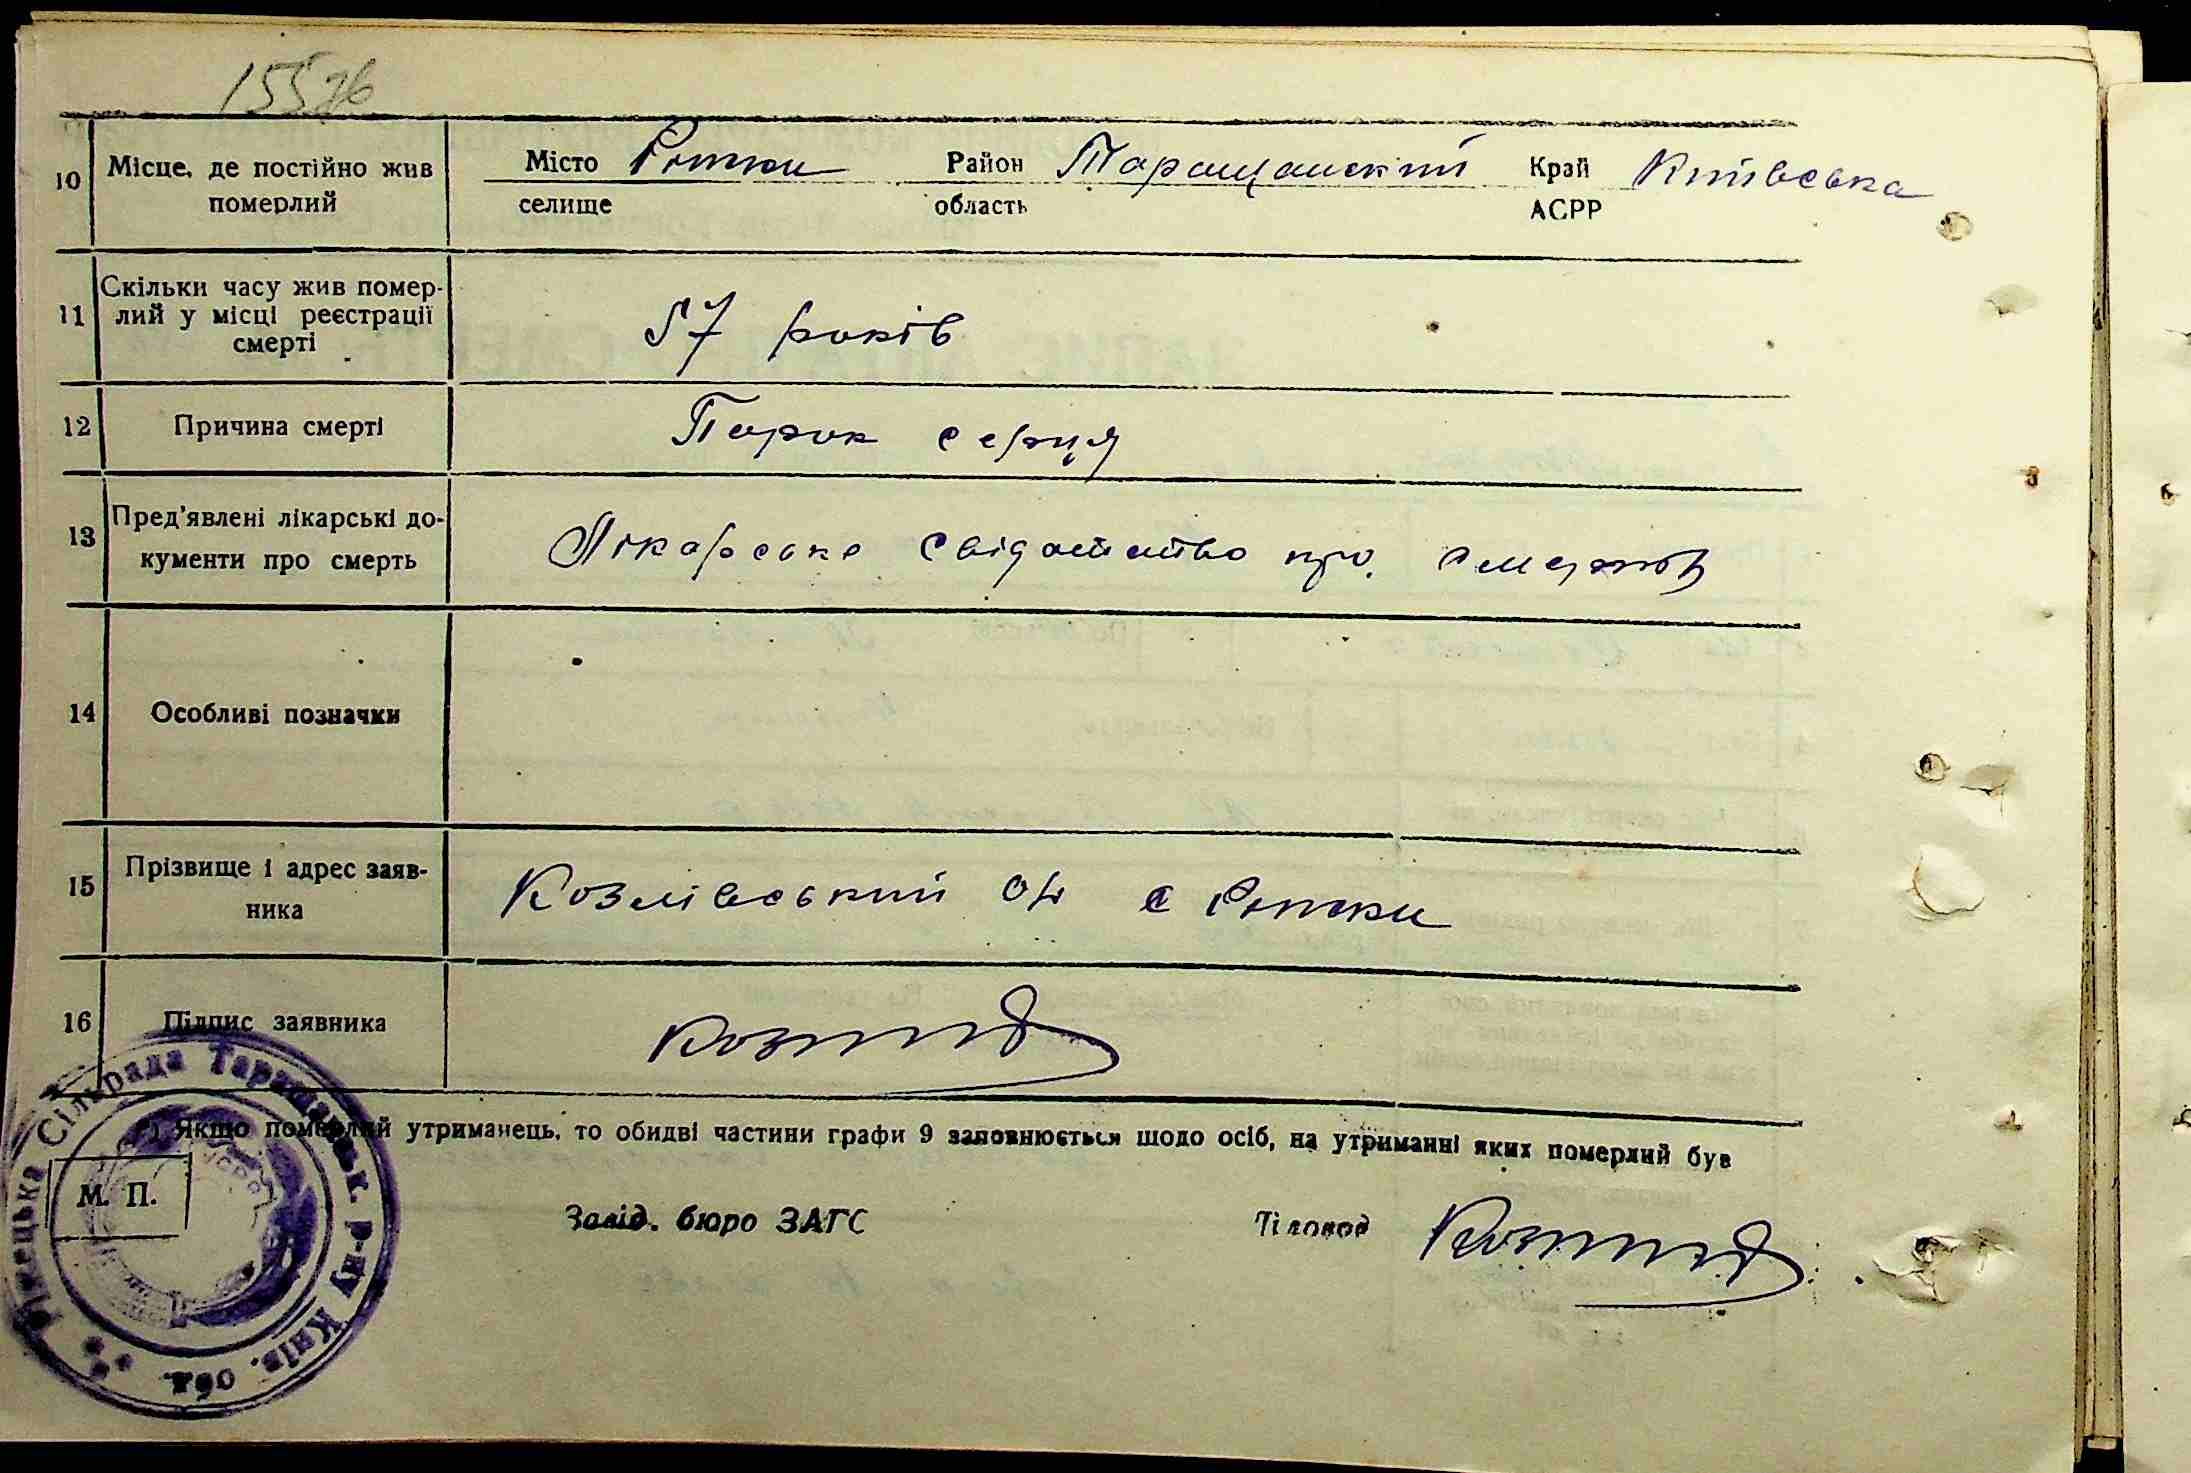 155зв
10 Місце, де постійно жив померлий
Місто Ріжки Район Таращанский Край Київська
селище область АСРР
11 Скільки часу жив помер-
лий у місці реєстрації
смерті
57 років
12 Причина смерті Порок серця
13 Пред'явлені лікарські до-
кументи про смерть
Лікарське свідоцтво про смерть
14 Особливі позначки
15 Прізвище і адрес заяв-
ника
с Ріжки
16 Підпис заявника
*) Якщо померлий утриманець, то обидві частини графи 9 заповнюється щодо осіб, на утриманні яких померлий був
М. П.
Завід. бюро ЗАГС Діловод
Сільрада Таращанськ. р-ну Київ. обл.